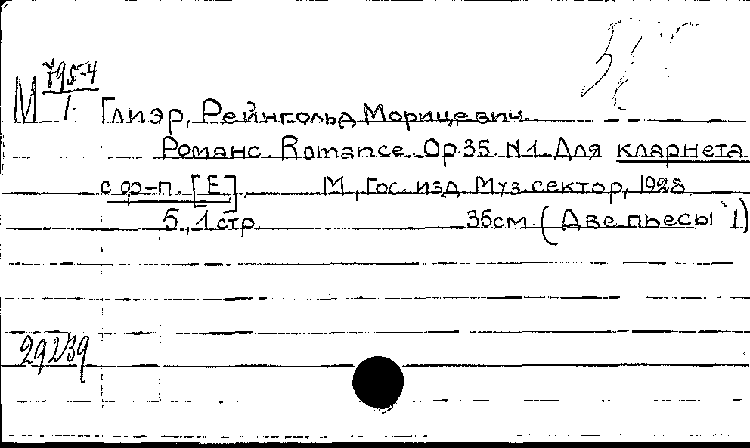 М 795-4
1.
Глиэр, Рейнгольд Морицевич.
Романс. Romance. Op.35. N1. Для кларнета
с ф-п. [E]. М., Гос. изд. Муз. сектор, 1928
5., 1 стр. 35см. (Две пьесы 1)
29239